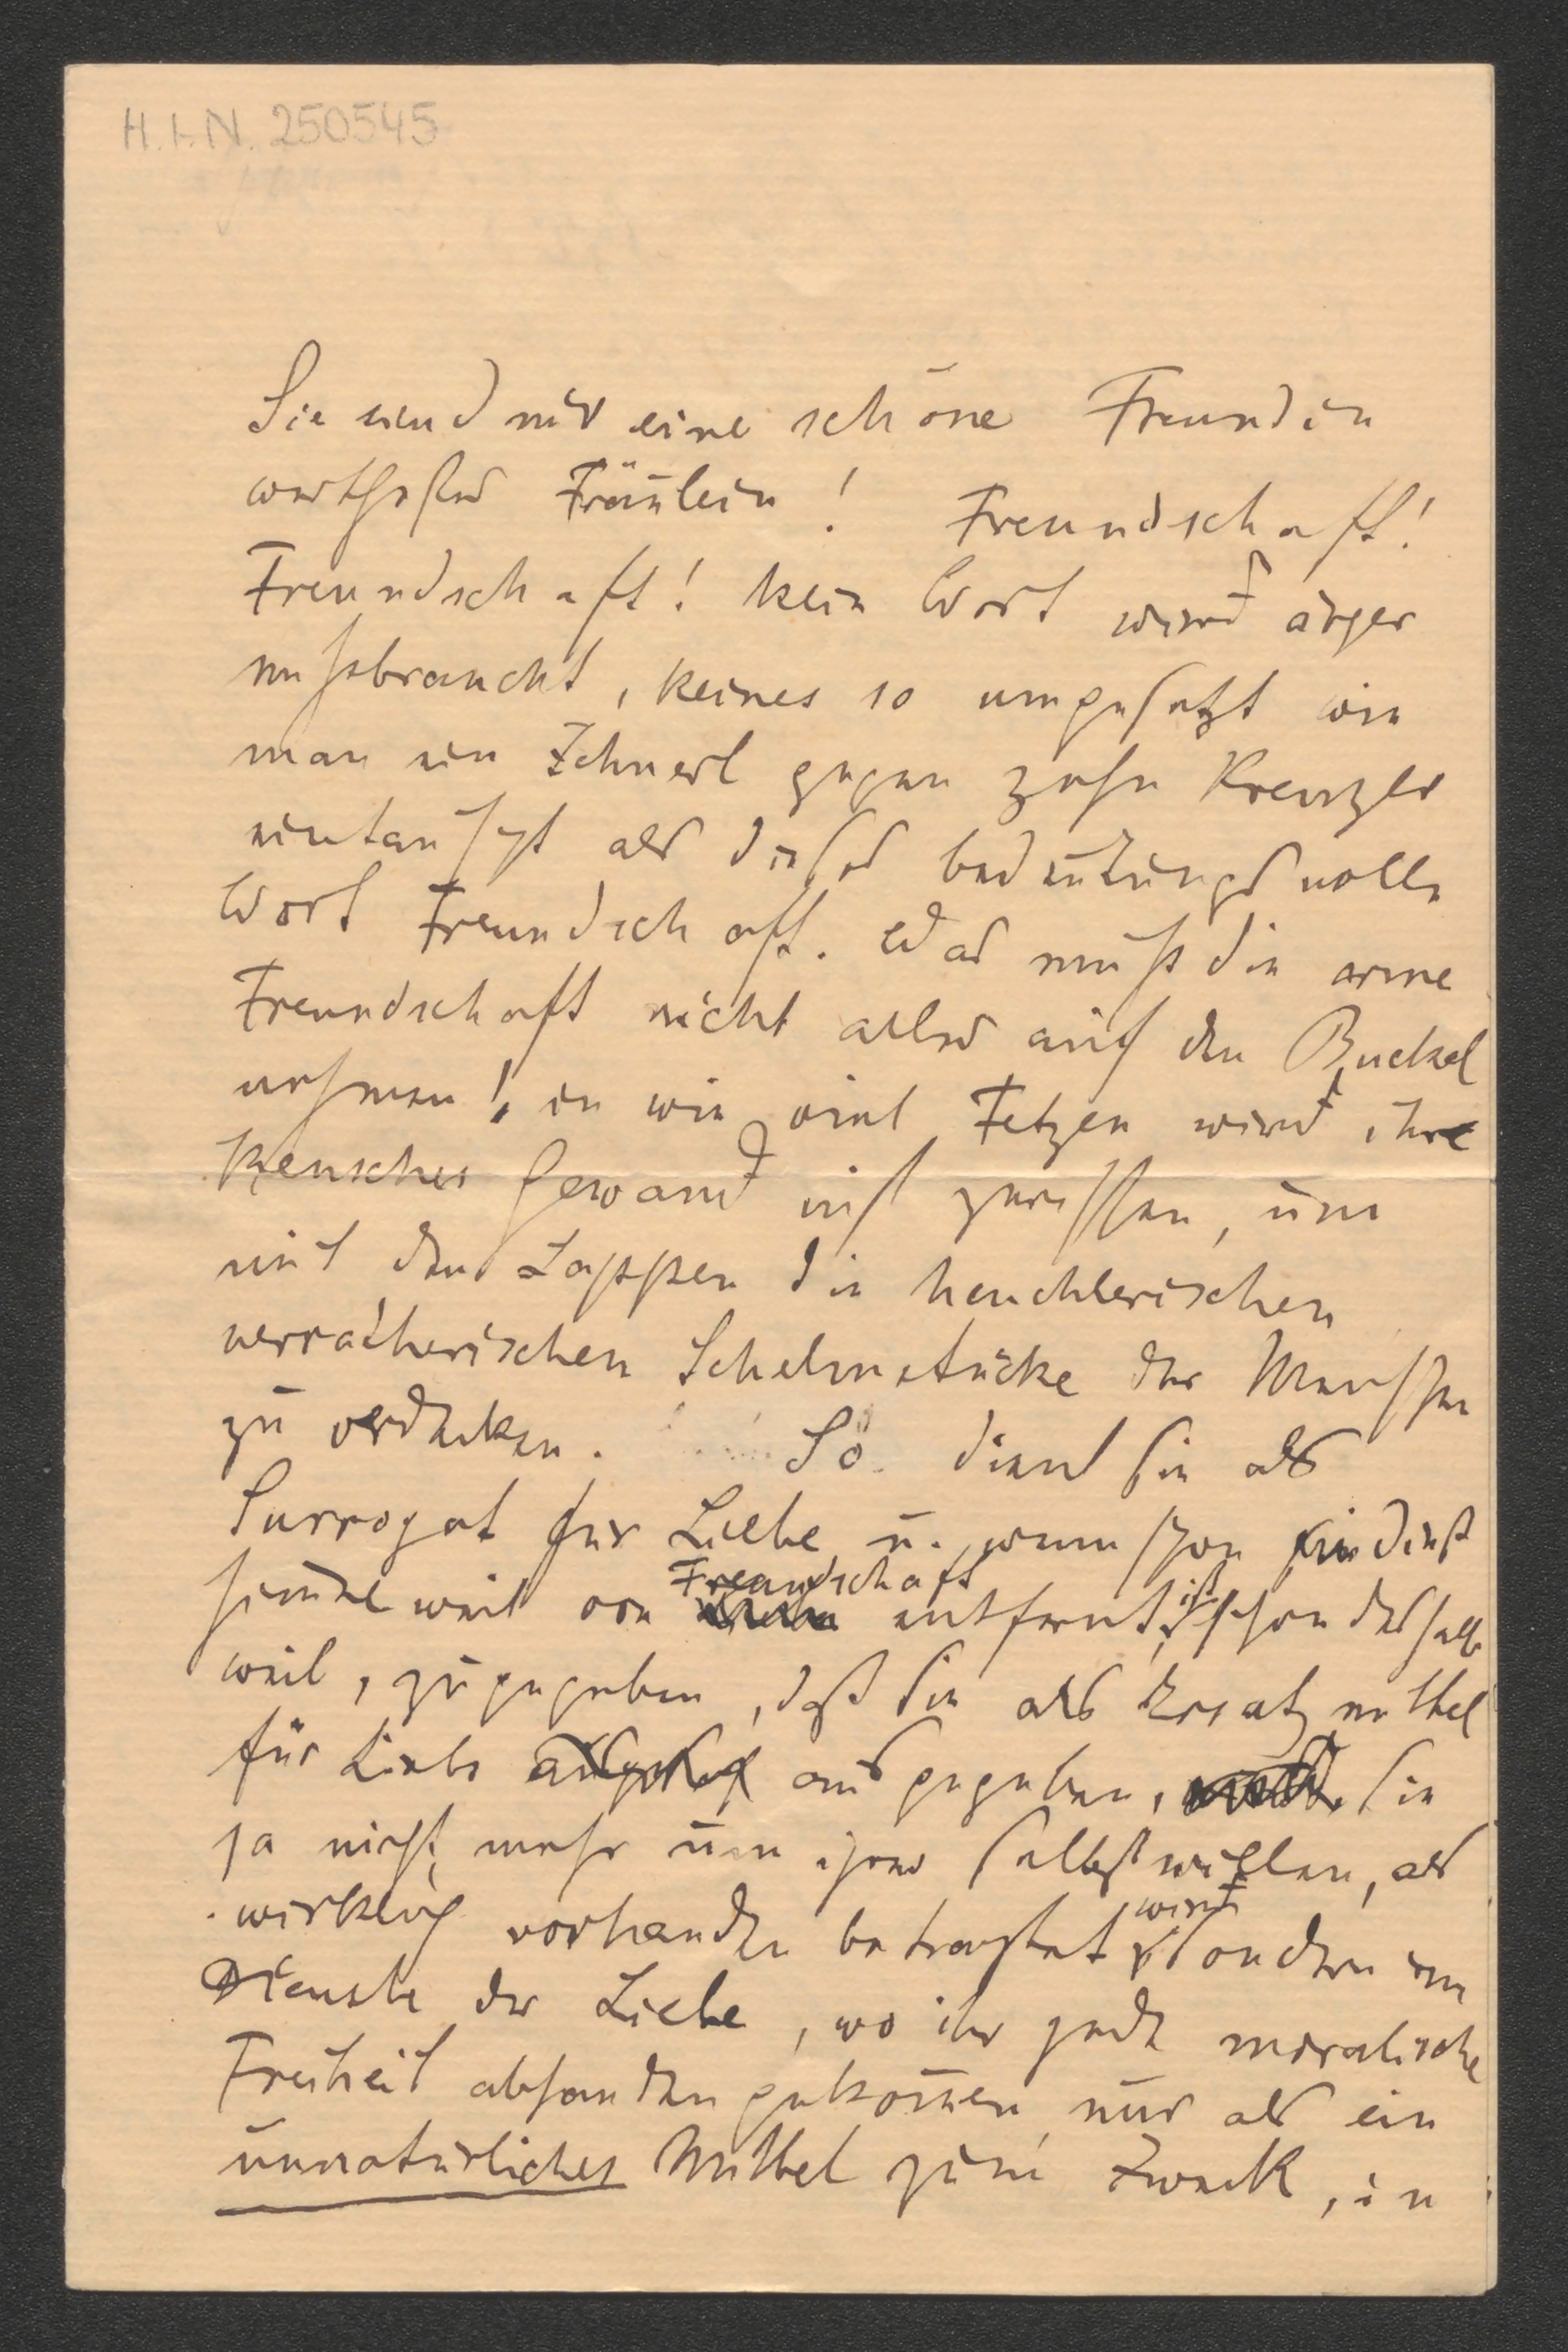 H.I.N. 250545
Sie sind mir eine schöne Freundin
werthestes Fräulein! Freundschaft!
Freundschaft! kein Wort wird ärger
missbraucht, keines so umgesetzt wie
man ein Zehnerl gegen zehn Kreuzer
eintauscht als dieses bedeutungsvolle
Wort Freundschaft. Was muß die arme
Freundschaft nicht alles auf den Buckel
nehmen! in wie viel Fetzen wird ihr
keusches Gewand nicht zerissen, um
mit den Lappen die heuchlerischen
verrätherischen Schelmstücke der Menschen
zu verdecken. So dient sie als
Surrogat für Liebe u. wenn schon
himmelweit von Freundschaft entfernt, ist schon deshalb
weil, zugegeben, daß sie als Ersatzmittel
für Liebe ausgegeben, sie
ja nicht mehr um ihres selbst willen, als
wirklich vorhanden betrachtet wird sondern im
Dienste der Liebe, wo ihr jede moralische
Freiheit abhanden gekommen nur als ein
unnatürliches Mittel zum Zweck, in